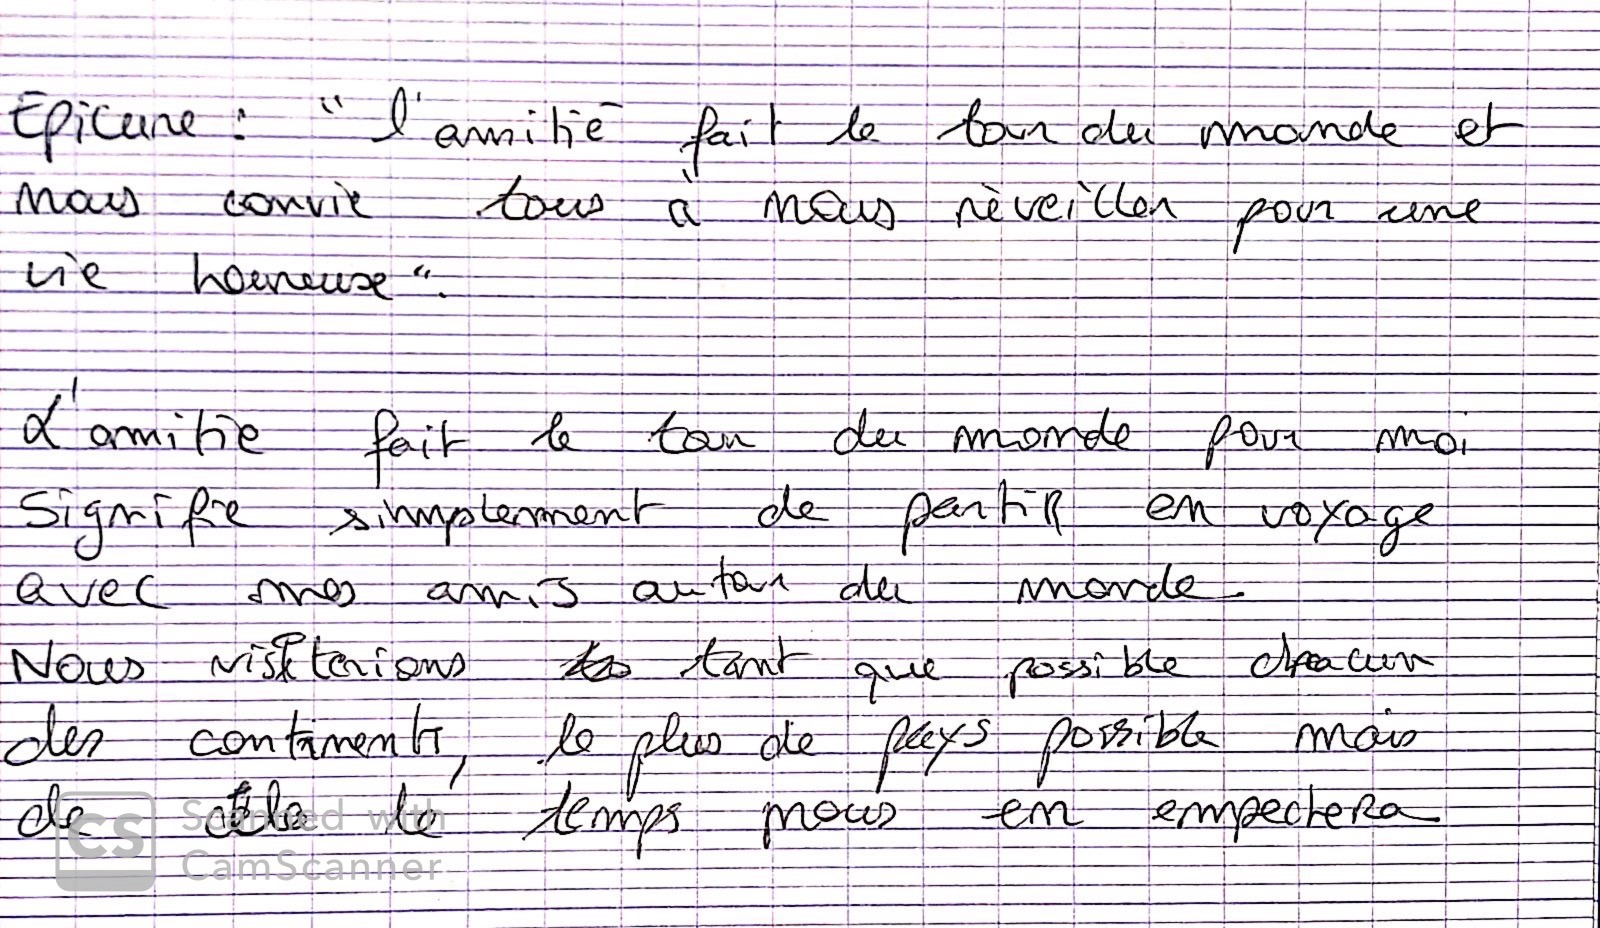 Epicure : " l'amitié fait le tour du monde et
nous convie tous à nous réveiller pour une
vie heureuse ".
L'amitié fait le tour du monde pour moi
signifie simplement de partir en voyage
avec mes amis autour du monde.
Nous visiterions tant que possible chacun
des continents, le plus de pays possible mais
de cela le temps nous en empechera
Scanned with
CS CamScanner